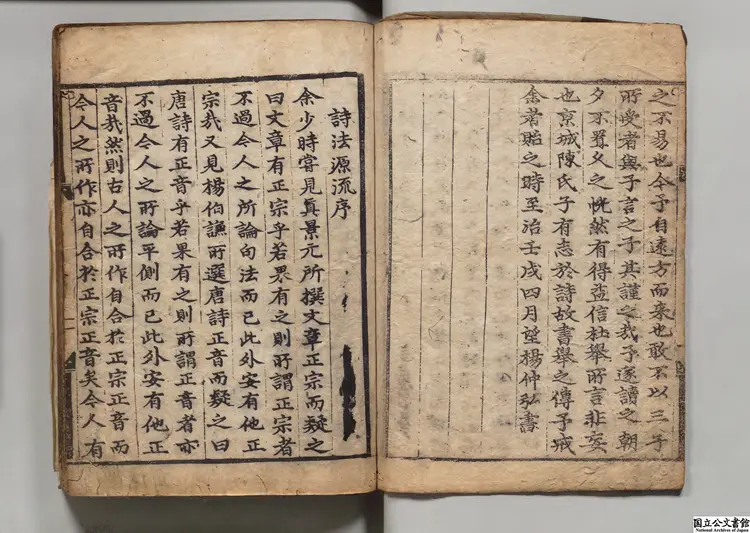 之不易也今予自遠方而来也敢不以三子
所受者與子言之子其謹之我予遂讀之朝
夕不置久之恍然有得益信杜舉所言非妄
也京城陳氏子有志於詩故書舉之傳予戒
余者貽之時至治壬戌四月望楊仲弘書
詩法源流序
余少時甞見眞景元所撰文章正宗而疑之
曰文章有正宗乎若果有之則所謂正宗者
不過令人之所論句法而已此外安有他正
宗㢤又見楊伯謙所選唐詩正音而疑之曰
唐詩有正音乎若果有之則所謂正音者亦
不過令人之所論平側而已此外安有他正
音㢤然則古人之所作自合於正宗正音而
令人之所作亦自合於正宗正音矣令人有
国立公文書館
National Archives of Japan